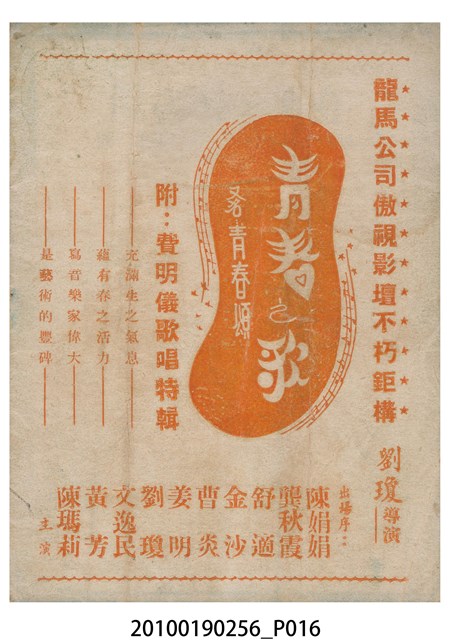 龍馬公司傲視影壇不朽鉅構
劉瓊導演
青春之歌
又名青春頌
附：費明儀歌唱特輯
充滿生之氣息
蘊有春之活力
寫音樂家偉大
是藝術的豐碑
出場序：
陳娟娟
龔秋霞
舒適
金沙
曹炎
姜明
劉瓊
文逸民
黃芳
陳瑪莉
主演
20100190256_P016